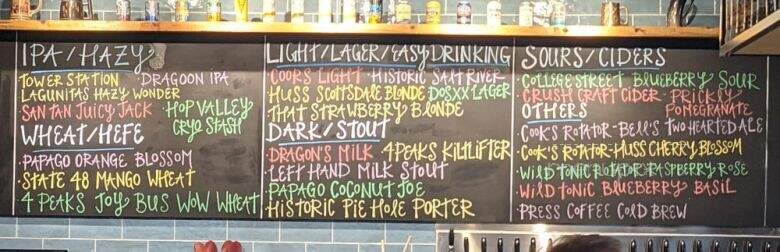 IPA/HAZY
TOWER STATION · DRAGOON IPA
LAGUNITAS HAZY WONDER
SAN TAN JUICY JACK · HOP VALLEY
CRYO STASH
WHEAT/HEFE
· PAPAGO ORANGE BLOSSOM
· STATE 48 MANGO WHEAT
· 4 PEAKS JOY BUS WOW WHEAT
LIGHT/LAGER/EASY DRINKING
· COORS LIGHT · HISTORIC SALT RIVER
HUSS SCOTTSDALE BLONDE · DOS XX LAGER
THAT STRAWBERRY BLONDE
DARK/STOUT
· DRAGON'S MILK · 4 PEAKS KILTLIFTER
· LEFT HAND MILK STOUT
· PAPAGO COCONUT JOE
· HISTORIC PIE HOLE PORTER
SOURS/CIDERS
· COLLEGE STREET BLUEBERRY SOUR
· CRUSH CRAFT CIDER - PRICKLY
POMEGRANATE
OTHERS
· COOK'S ROTATOR - BELL'S TWO HEARTED ALE
· COOK'S ROTATOR - HUSS CHERRY BLOSSOM
· WILD TONIC ROTATOR RASPBERRY ROSE
· WILD TONIC BLUEBERRY BASIL
· PRESS COFFEE COLD BREW